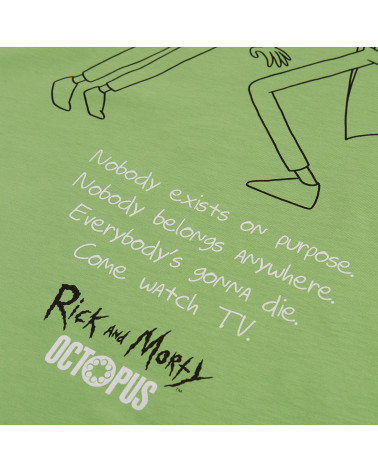 Nobody exists on purpose.
Nobody belongs anywhere.
Everybody's gonna die.
Come watch TV.
Rick and Morty
OCTOPUS